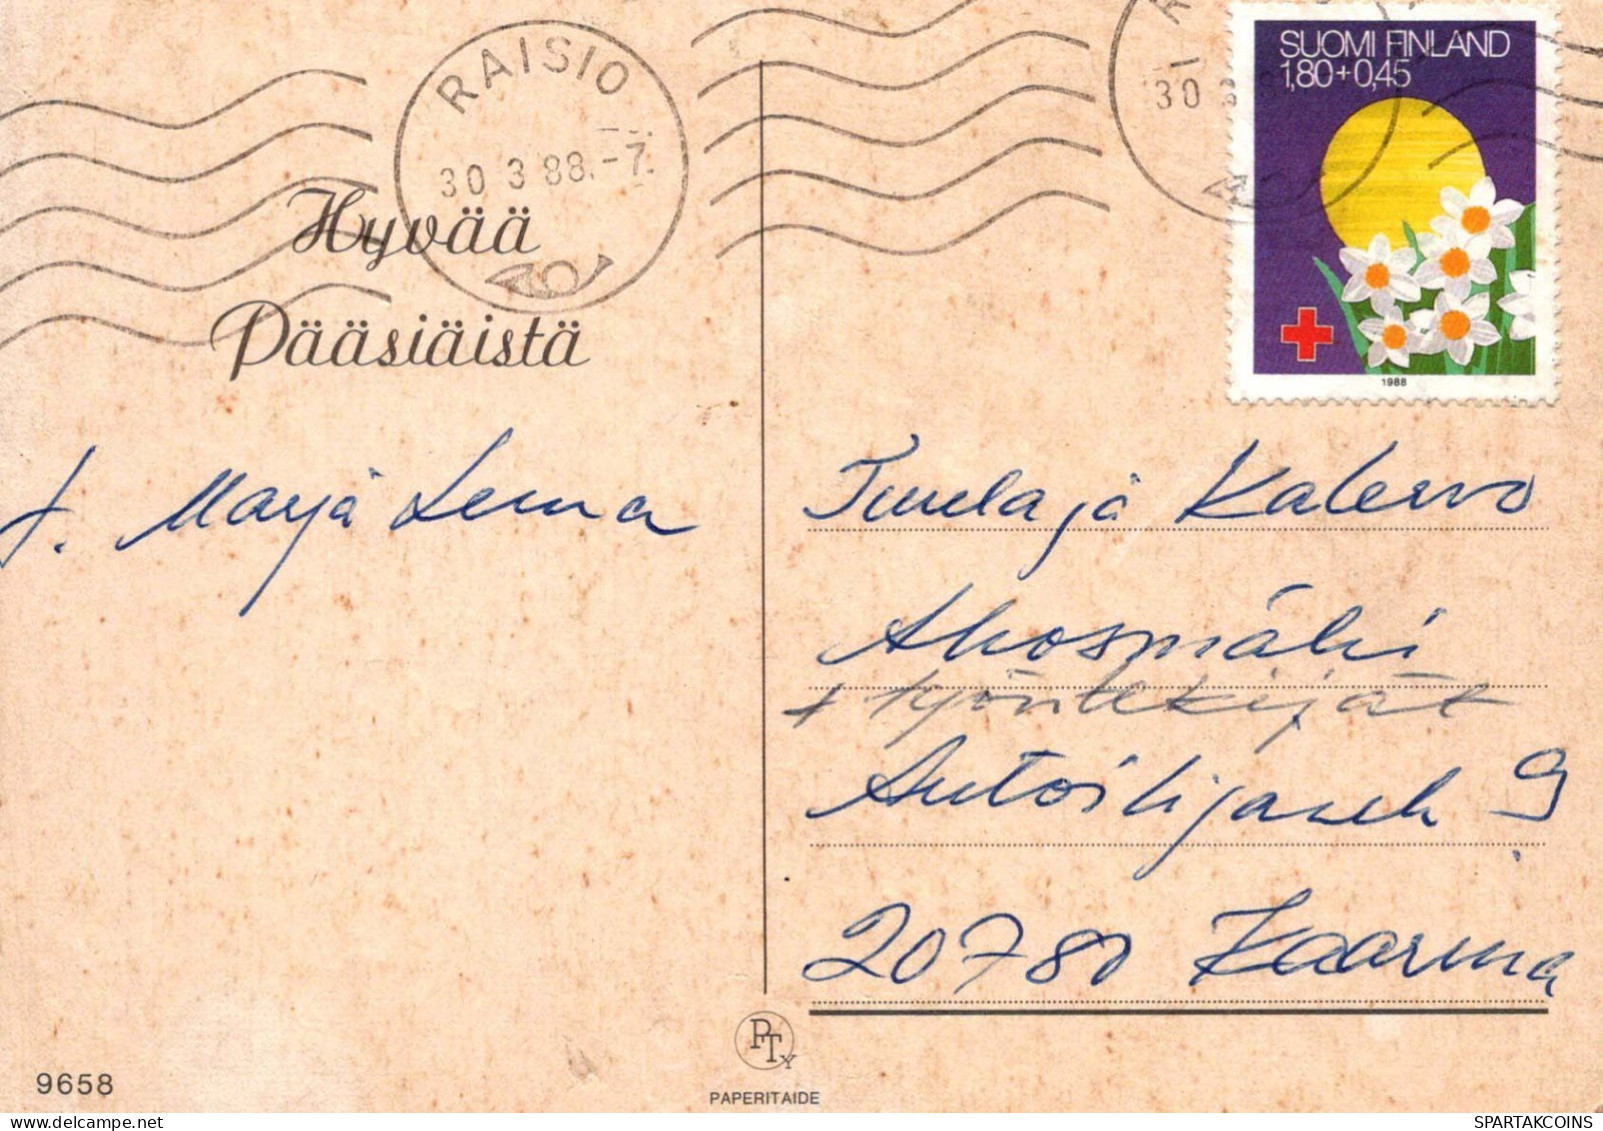 RAISIO
30 3 88.-7.
30
SUOMI FINLAND
1,80+0,45
1988
Hyvää
Pääsiäistä
t. Marja Leena
Tuula ja Kalervo
Ahosmäki
+ työntekijät
Autoilijank 9
20780 Kaarina
PTy
PAPERITAIDE
9658
SPARTAKCOINS